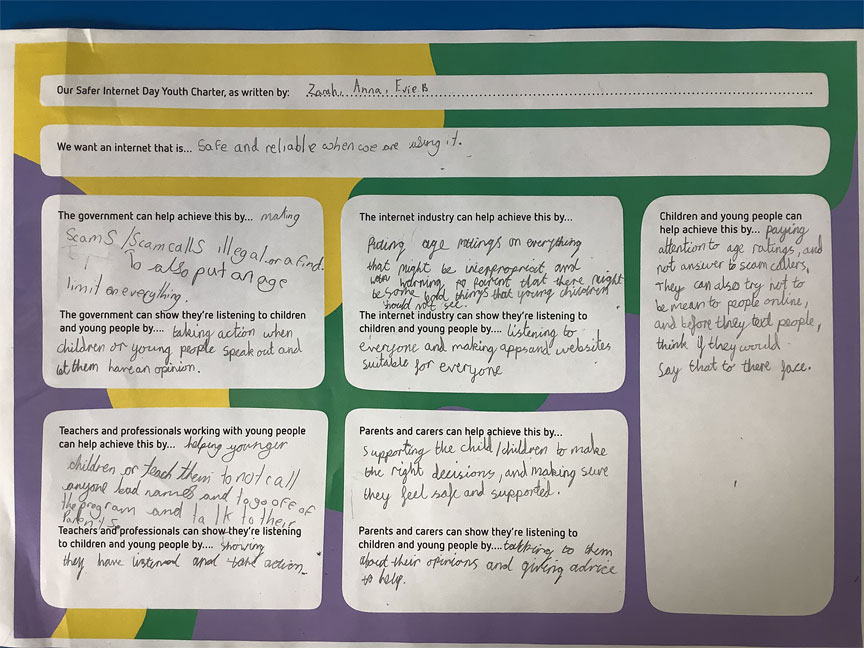 Our Safer Internet Day Youth Charter, as written by: Zarah, Anna, Evie B
We want an internet that is... Safe and reliable when we are using it.
The government can help achieve this by... making
Scams/Scamcalls illegal or a find.
To also put an age
limit on everything.
The government can show they're listening to children
and young people by.... taking action when
children or young people speak out and
let them have an opinion.
The internet industry can help achieve this by...
Puting age ratings on everything
that might be inepropriect and
warning parent that there might
be some bold things that young children
should not see.
The internet industry can show they're listening to
children and young people by.... listening to
everyone and making apps and websites
suitable for everyone
Children and young people can
help achieve this by... paying
attention to age ratings, and
not answer to scam callers.
They can also try not to
be mean to people online,
and before they text people,
think if they would
say that to there face.
Teachers and professionals working with young people
can help achieve this by... helping younger
children or teach them to not call
anyone bad names and to go off of
the program and talk to their
Parents
Teachers and professionals can show they're listening
to children and young people by.... showing
they have listened and take action
Parents and carers can help achieve this by...
Supporting the child/children to make
the right decisions, and making sure
they feel safe and supported.
Parents and carers can show they're listening to
children and young people by.... talking to them
about their opinions and giving advice
to help.